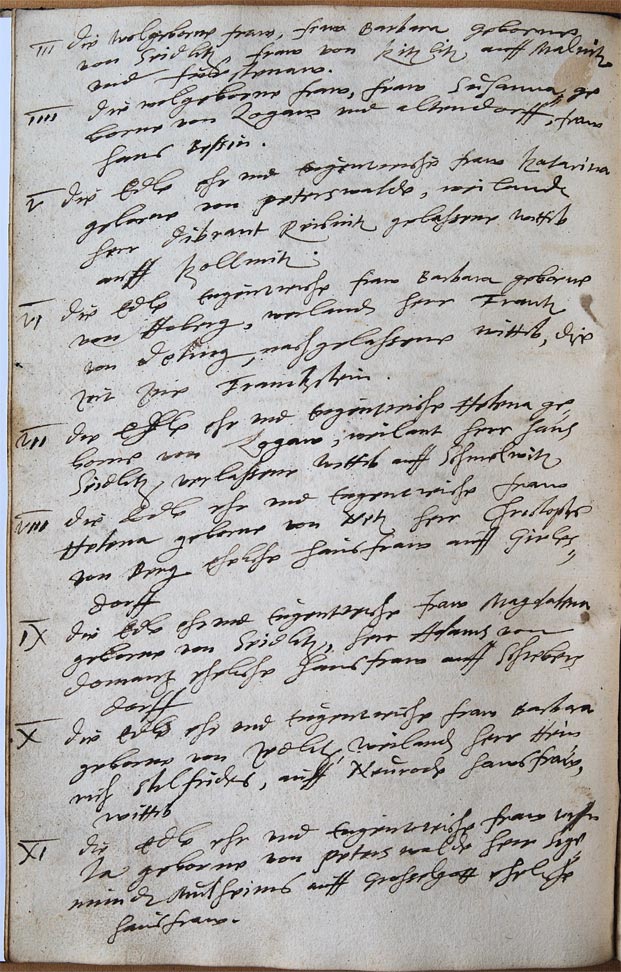 III die wolgeborne fraw, fraw Barbara geborne
von Seidlitz fraw von Kitlitz auff Malmitz
vnd
IIII die wolgeborne fraw, fraw Susanna ge
borne von Logaw vnd altendorff, fraw
hans
V die Edle ehr vnd tugentreiche fraw Katarina
geborne von peterswalde, weiland
herr gelassene wittib
auff
VI die Edle tugentreiche fraw Barbara geborne
von Hoberg, weiland herr Frantz
von nachgelassene wittib, die
zeit Franckstein.
VII die Edle ehr vnd tugentreiche Helena ge
borne von Logaw, weilant herr hans
Seidlitz verlassene wittib auff Schmelwitz
VIII die Edle ehr vnd tugentreiche fraw
Helena geborne von herr Christophs
von Berg eheliche hausfraw auff
dorff
IX die Edle ehr vnd tugentreiche fraw Magdalena
geborne von Seidlitz, herr Adams von
domanz eheliche hausfraw auff
dorff
X die Edle ehr vnd tugentreiche fraw Barbara
geborne von weiland herr Hein
rich Stilfrides, auff Neurode hausfraw,
wittib
XI die Edle ehr vnd tugentreiche fraw
la geborne von peterswalde herr Sige
mund auff eheliche
hausfraw.